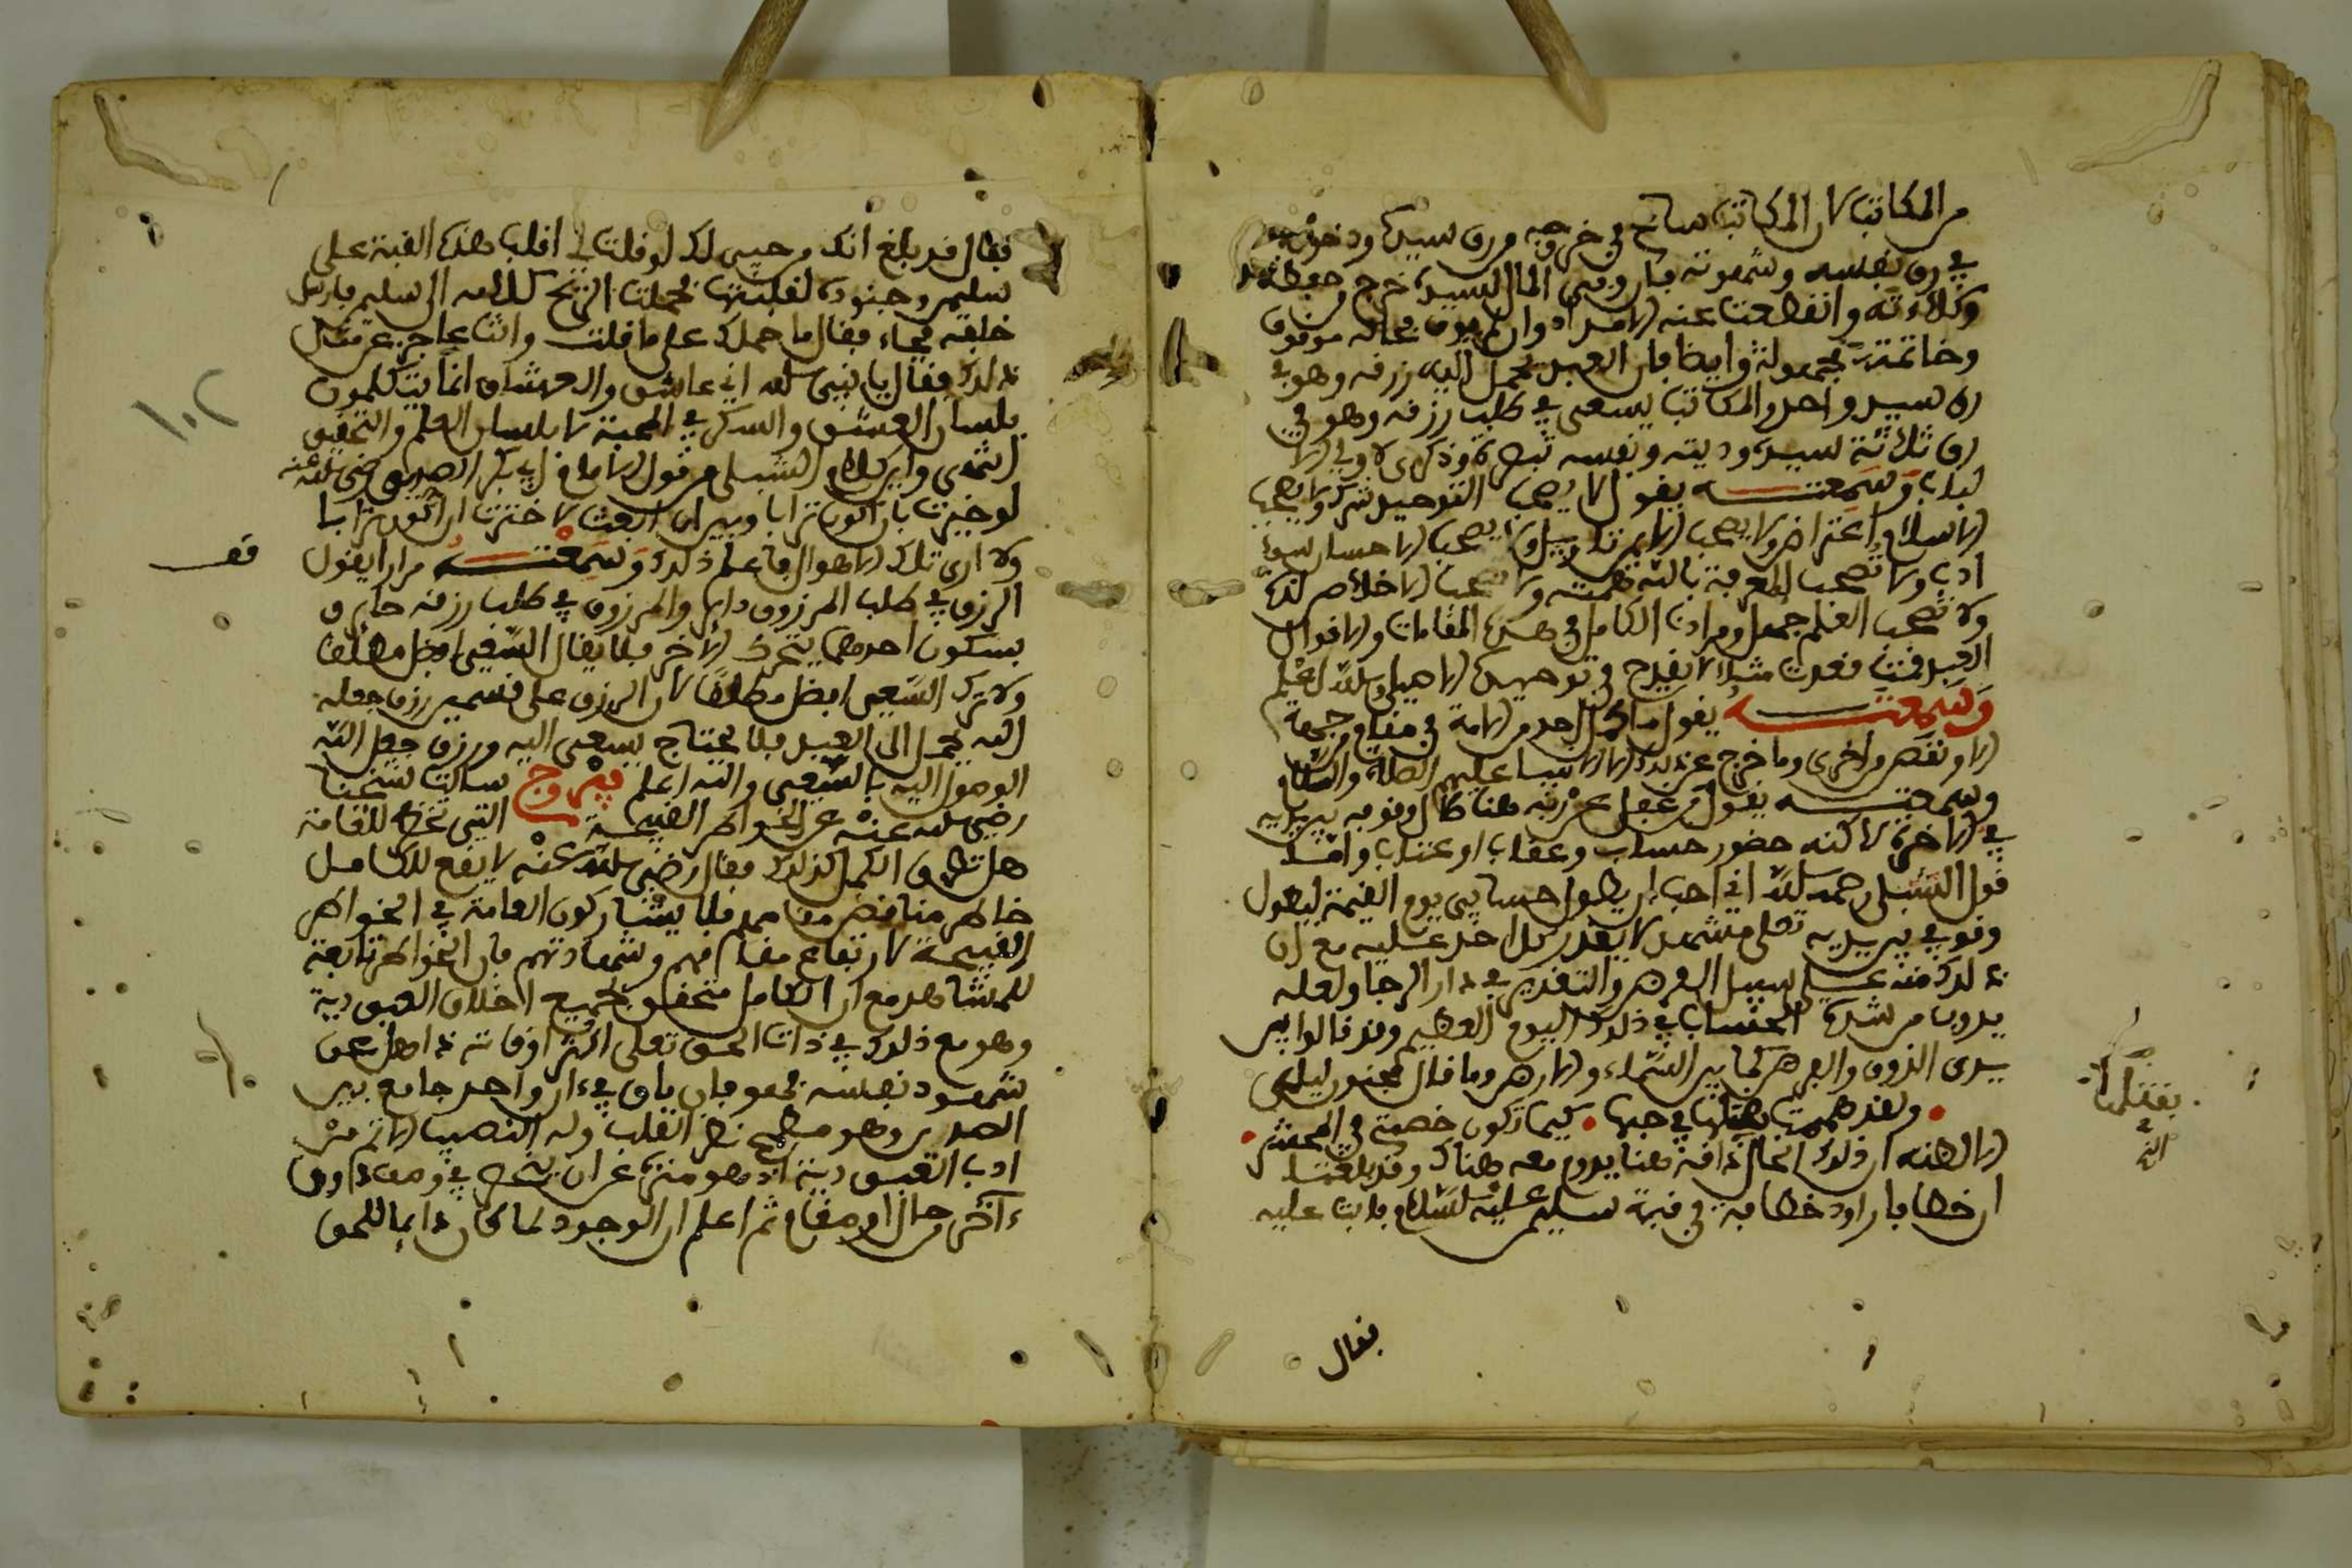 من المكاتب لان المكاتب ساع في خروجه من رق سيده ودخوله
في رق نفسه وشهوته فان وفى المال لسيده خرج من حفظه
وكلاءته وانقطعت عنه الامداد وان لم يوف فحاله موقوف
وخاتمته مجهولة وايضا فان العبد يحمل اليه رزقه وهو في
رق سيد واحد والمكاتب يسعى في طلب رزقه وهو في
رق ثلاثة سيده ودينه ونفسه تبصرة وذكرى لاولي الا
لباب وسمعته يقول لا يصحب التوحيد شرك ولا يصحب
الاسلام اعتراض ولا يصحب الايمان تاويل ولا يصحب الاحسان سوء
ادب ولا تصحب المعرفة بالله همة ولا تصحب الاخلاص لذة
ولا يصحب العلم جهل ومرادنا الكامل في هذه المقامات والاقوال
العبد فقد مثلا لا يقدح في توحيده الاصلي والله اعلم
وسمعته يقول ما كمل احد من الامة في مقام من جهة
الا ونقص من اخرى وما خرج عن ذلك الا الانبيا عليهم الصلاة والسلام
وسمعته يقول من غفل عن ربه هنا طال وقوفه بين يديه
في الاخرة لاكنه حضور حساب وعقاب او عتاب واما
قول الشبلي رحمه الله اني احب ان يطول حسابي يوم القيمة ليطول
وقوفي بين يديه تعلى فمشهد لا يقدر كل احد عليه مع ان
ذلك منه على سبيل الفرض والتقدير في دار الرجا ولعله
يذوب من شدة الحساب في ذلك اليوم العظيم وقد قالوا بين
يدى الذوق والفرض كما بين السماء والارض وما قال مجنون ليلى
ولقد هممت بقتلها في حبها كيما تكون خصمتي في المحشر
الا لظنه ان ذلك الحال ذاقه هنا يدوم معه هناك وقد بلغنا
ان خطافا راود خطافة في قبة سليمن عليه السلام فابت عليه
فقال
بقتلها
في
الله
فقال قد بلغ انك من حبي لك لو قلت لي اقلب هذه القبة على
سليمن وجنوده لقلبتها فحملت الريح كلامه الى سليمن فارسل
خلفه فجاء فقال ما حملك على ما قلت وانت عاجز عن مثل
ذلك فقال يا نبي الله اني عاشق والعشاق انما يتكلمون
بلسان العشق والسكر في المحبة لا بلسان العلم والتحقيق
انتهى واين كلام الشبلي من قول الامام ابي بكر الصديق رضي الله عنه
لو خيرت بان اكون ترابا وبين ان ابعث لاخترت ان اكون ترابا
ولا ارى تلك الاهوال فاعلم ذلك وسمعته مرارا يقول
الرزق في طلب المرزوق داير والمرزوق في طلب رزقه حاير و
بسكون احدهما يتحرك الاخر فلا يقال السعي افضل مطلقا
ولا ترك السعي افضل مطلقا لان الرزق على قسمين رزق جعله
الله يحمل الى العبد فلا يحتاج يسعى اليه ورزق جعل الله
الوصول اليه بالسعي والله اعلم فيروزج سالت شيخنا
رضي الله عنه عن الخواطر القبيحة التي تخطر للعامة
هل تطرق الكمل كذلك فقال رضي الله عنه لا يقع للكامل
خاطر مناقض مقامه فلا يشاركون العامة في الخواطر
القبيحة لارتفاع مقامهم وشهادتهم فان الخواطر تابعة
للمشاهد مع ان الكامل متحقق بجميع اخلاق العبودية
وهو مع ذلك في ذات الحق تعلى اكثر اوقاته ذاهل عن
شهود نفسه فهو فان باق في ءان واحد جامع بين
الضدين وهو مطمح نظر القلب وله النصيب الاتم من
ادب العبودية اذ هو منزه عن ان ينحصر في وصف دون
ءاخر وحال او مقام ثم اعلم ان الوجود لما كان دايما للحق
قف
١٠٢